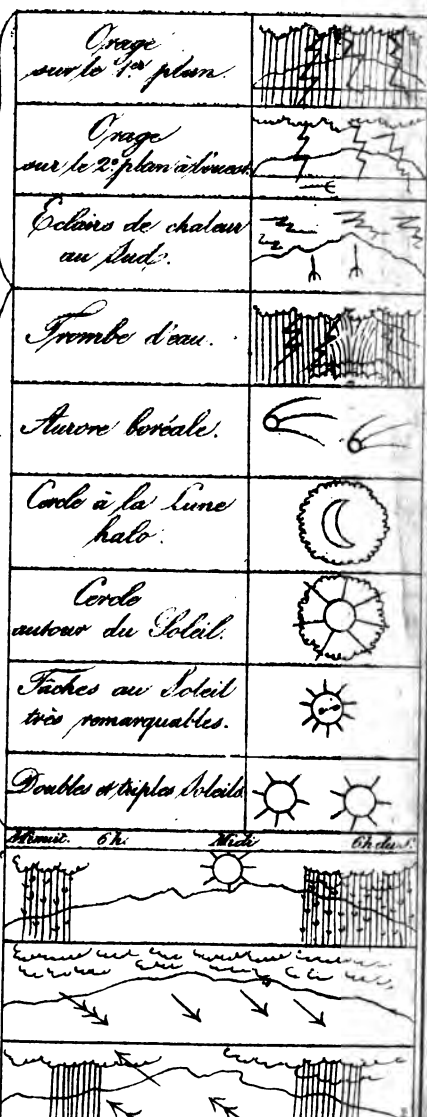 Orage
sur le 1er plan.
Orage
sur le 2e plan à l'ouest.
Eclairs de chaleur
au Sud.
Trombe d'eau.
Aurore boréale.
Cercle à la Lune
halo.
Cercle
autour du Soleil.
Tâches au Soleil
très remarquables.
Doubles et triples Soleils
Minuit. 6h. Midi 6h du s.